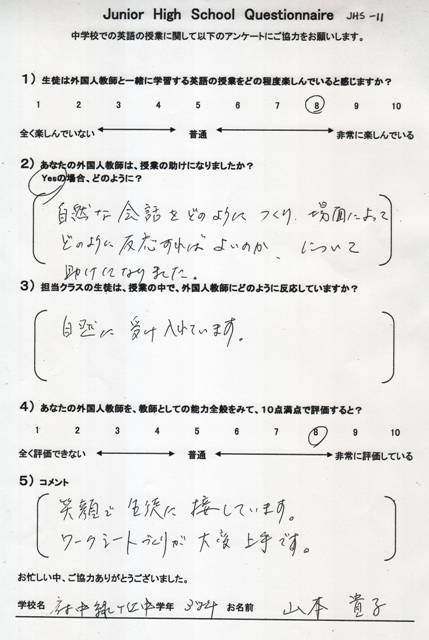 Junior High School Questionnaire JHS-11
中学校での英語の授業に関して以下のアンケートにご協力をお願いします。
1) 生徒は外国人教師と一緒に学習する英語の授業をどの程度楽しんでいると感じますか?
1 2 3 4 5 6 7 8 9 10
全く楽しんでいない 普通 非常に楽しんでいる
2) あなたの外国人教師は、授業の助けになりましたか?
Yesの場合、どのように?
自然な会話をどのようにつくり、場面によって
どのように反応すればよいのか、について
助けになりました。
3) 担当クラスの生徒は、授業の中で、外国人教師にどのように反応していますか?
自然に受け入れています。
4) あなたの外国人教師を、教師としての能力全般をみて、10点満点で評価すると?
1 2 3 4 5 6 7 8 9 10
全く評価できない 普通 非常に評価している
5) コメント
笑顔で生徒に接しています。
ワークシートづくりが大変上手です。
お忙しい中、ご協力ありがとうございました。
学校名 府中緑ヶ丘中 学年 お名前 山本 貴子